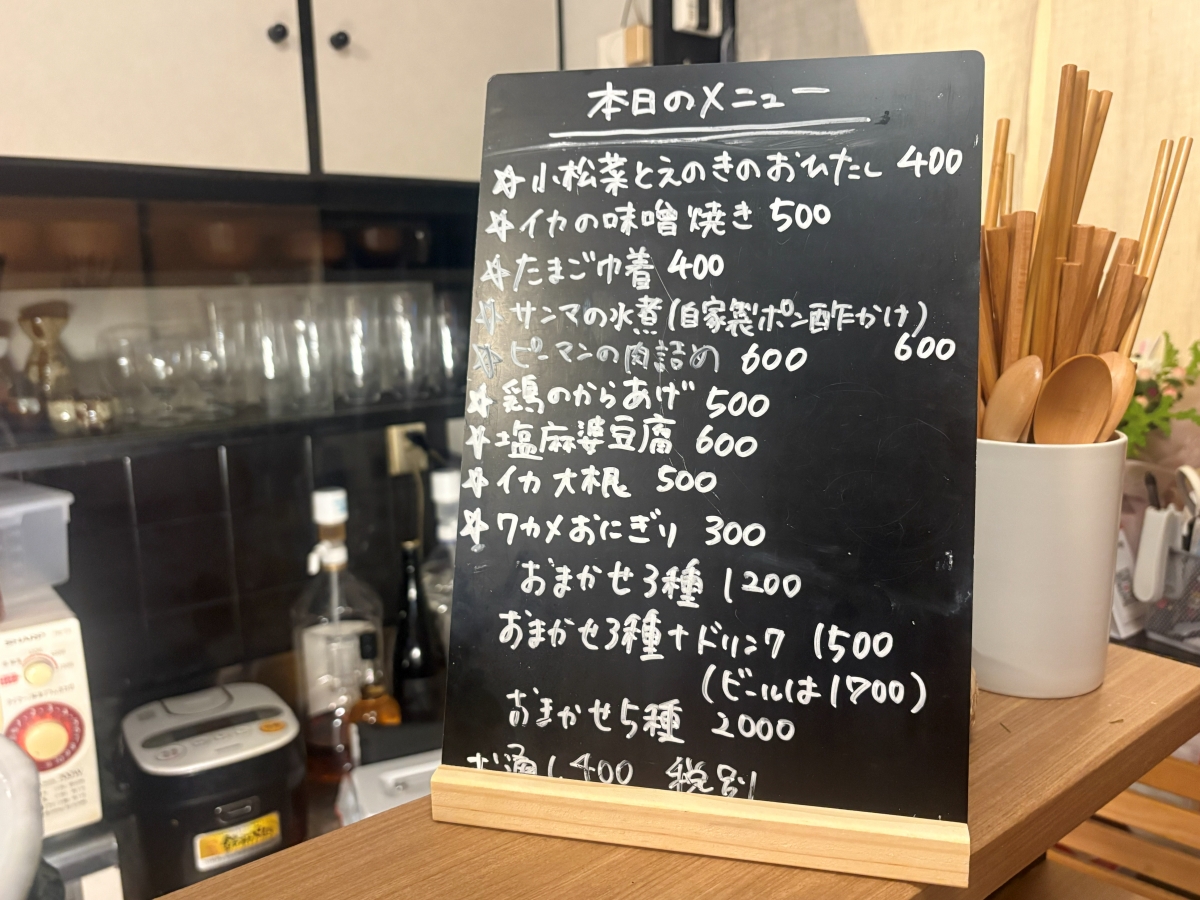 本日のメニュー
☆小松菜とえのきのおひたし 400
☆イカの味噌焼き 500
☆たまご巾着 400
☆サンマの水煮(自家製ポン酢かけ)
600
☆ピーマンの肉詰め 600
☆鶏のからあげ 500
☆塩麻婆豆腐 600
☆イカ大根 500
☆ワカメおにぎり 300
おまかせ3種 1200
おまかせ3種+ドリンク 1500
(ビールは1700)
おまかせ5種 2000
お通し400 税別